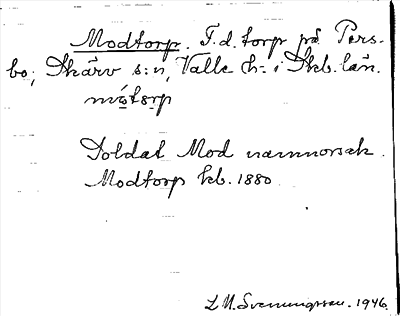 Modtorp. F.d. torp på Pers-
bo; Skärv s:n, Valle h:- i Skb. län.
mότɔrp
Soldat Mod namnorsak.
Modtorp kb. 1880
L M. Svenungsson. 1946.